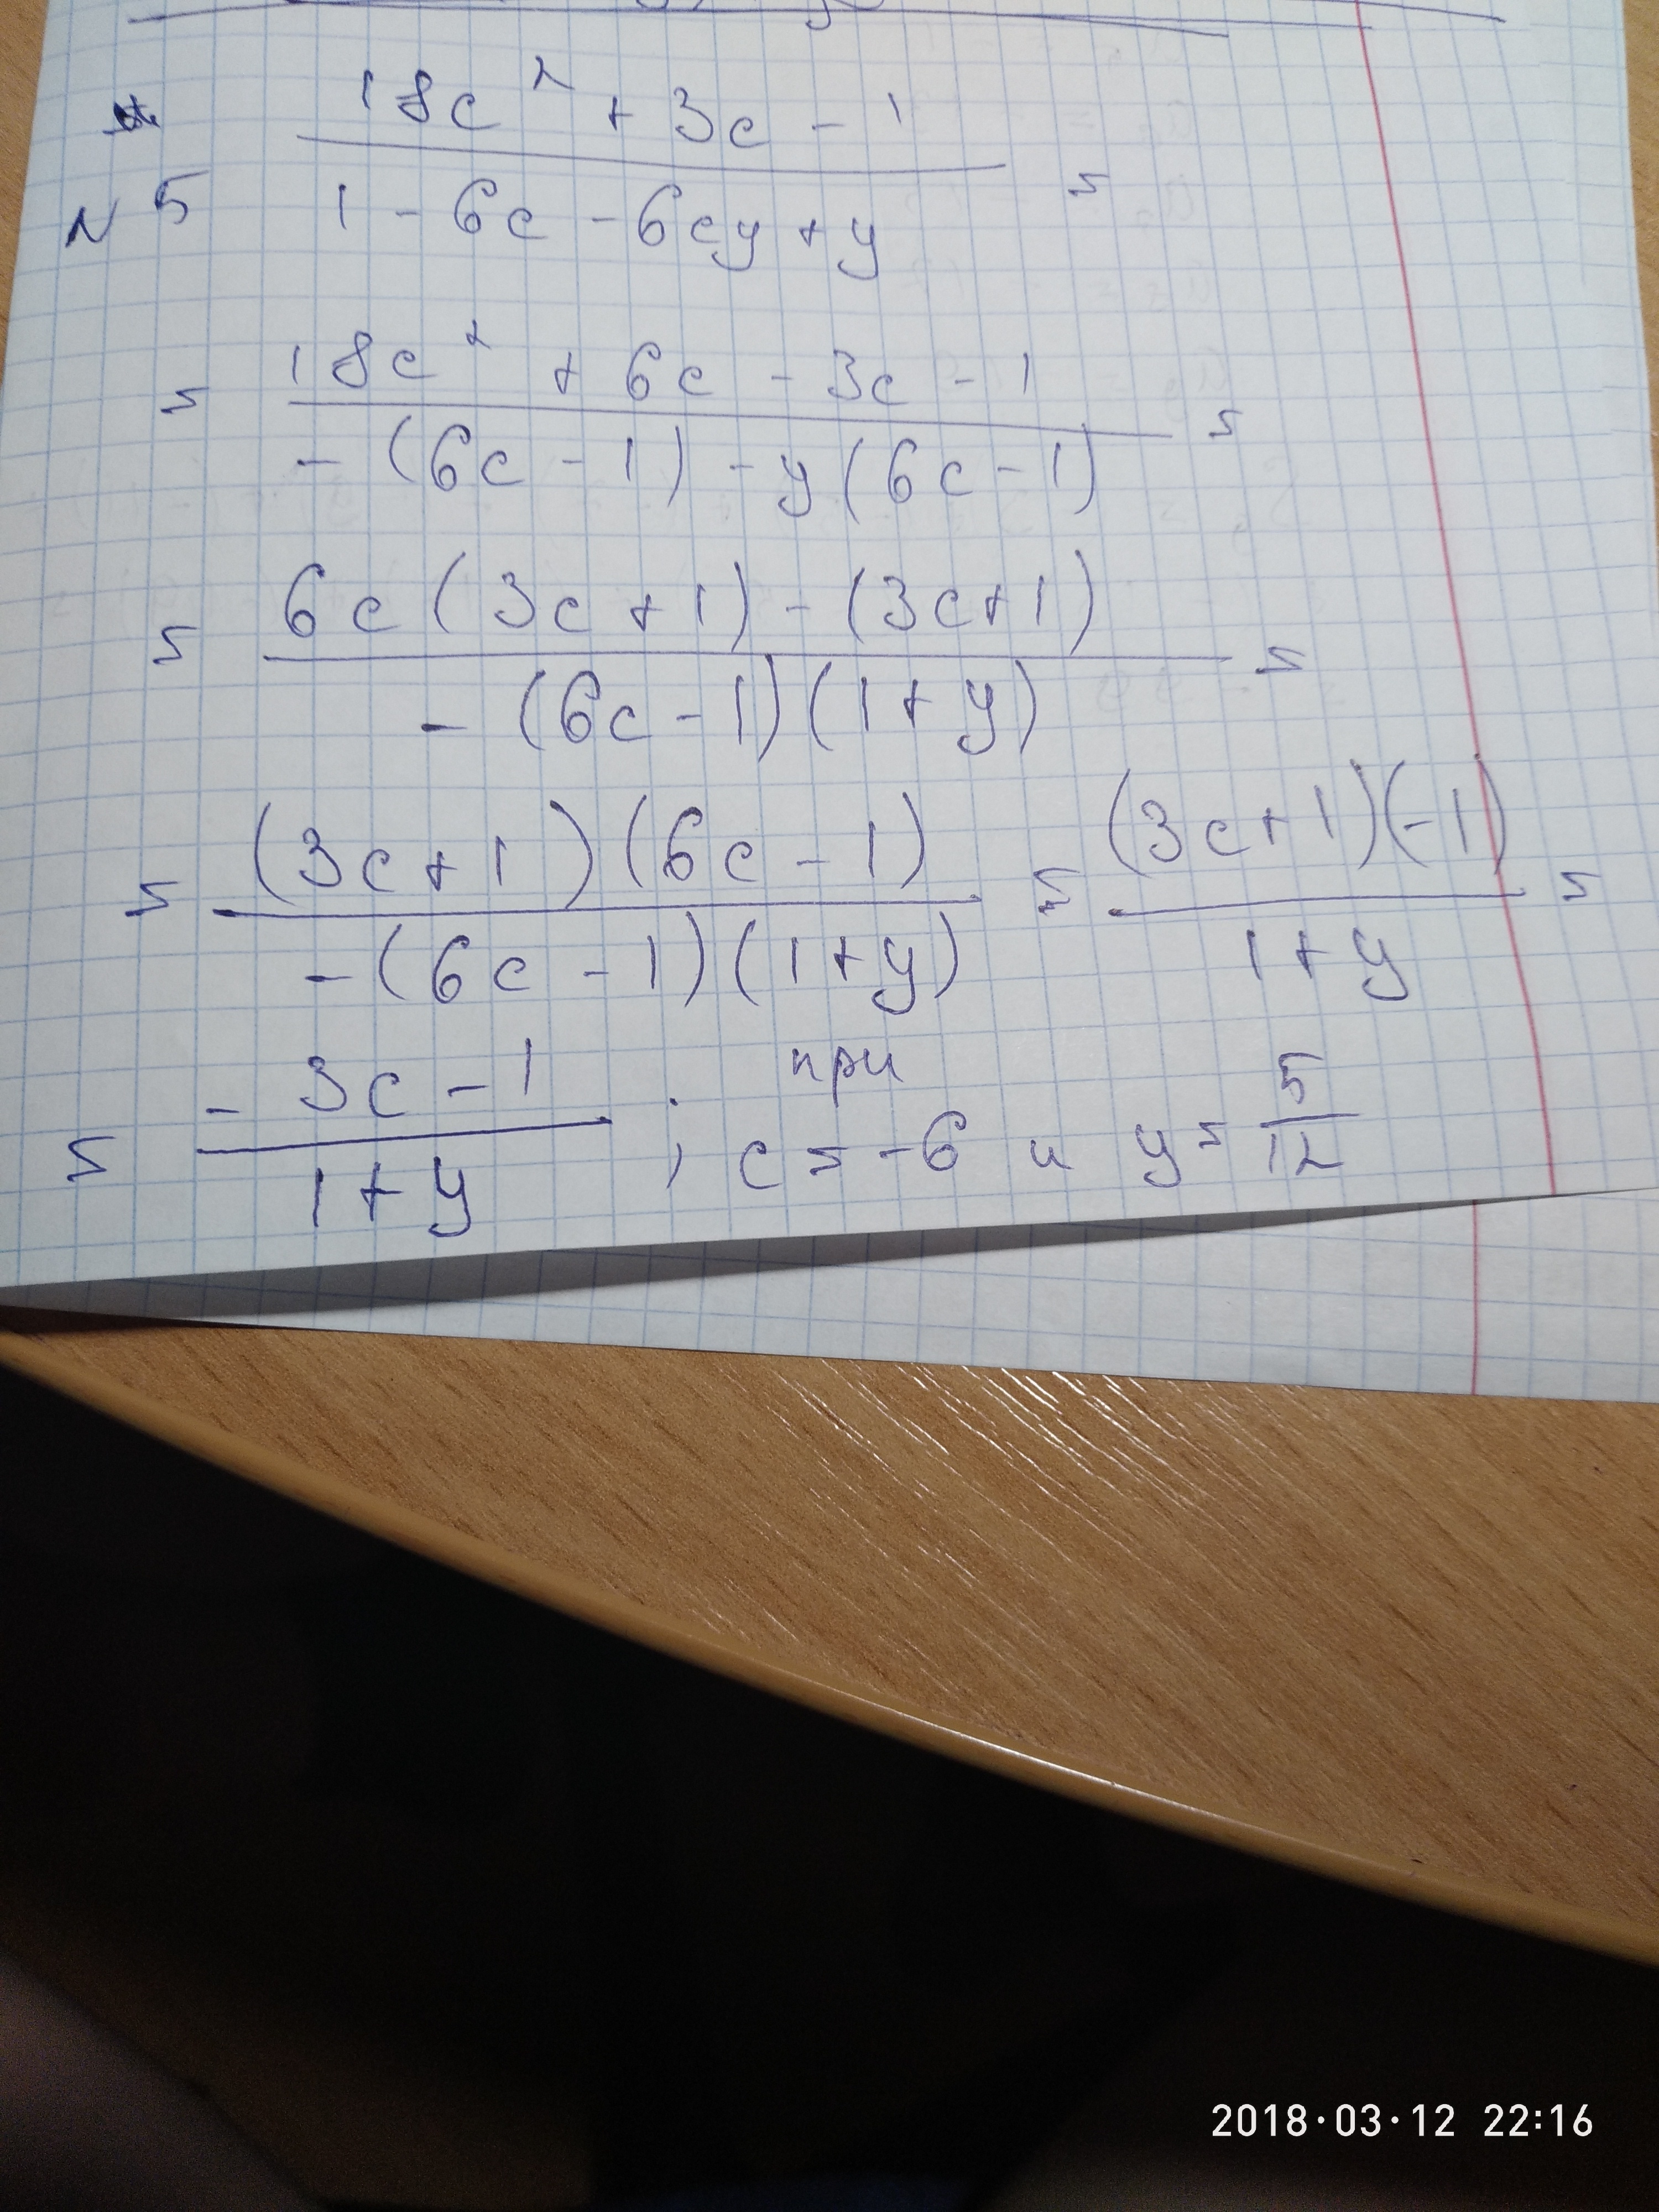 N 5 (18c² + 3c - 1)/(1 - 6c - 6cy + y) =
= (18c² + 6c - 3c - 1)/(-(6c - 1) - y(6c - 1)) =
= (6c(3c + 1) - (3c + 1))/(-(6c - 1)(1 + y)) =
= ((3c + 1)(6c - 1))/(-(6c - 1)(1 + y)) = ((3c + 1)(-1))/(1 + y) =
= (-3c - 1)/(1 + y) ; при c = -6 и y = 5/12
2018.03.12 22:16